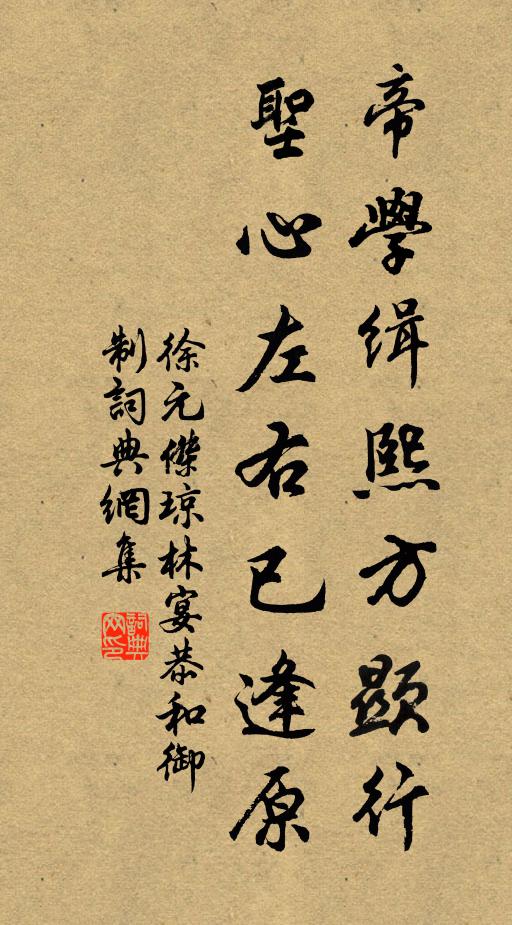 帝學緝熙方顯行
聖心左右已逢原
徐元傑琼林宴恭和御
制詞典網集
詞典网印